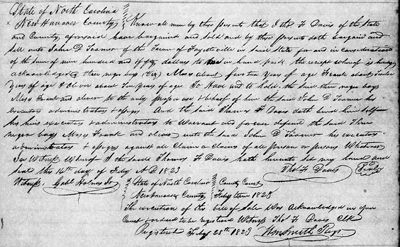 State of North Carolina
New Hanover County Know all men by these presents that I Thos. F. Davis of the State
and County aforesaid have bargained and sold and by these presents doth bargain and
sell unto John D. of the Town of Fayetteville in said State for and in consideration
of the sum of nine hundred and fifty dollars to me in hand paid the receipt whereof is hereby
acknowledged three negro boys (Viz) Moses about fifteen Years of age Frank about twelve
Years of age & Oliver about Ten years of age To Have and to hold the said three negro boys
Moses Frank and Oliver to the only proper use & behoof of him the said John D. his
executors administrators & assigns And the said Thomas F. Davis doth bind himself
his heirs executors and administrators to Warrant and forever defend the said three
negro boys Moses Frank and Oliver unto the said John D. his executors
administrators & assigns against all Claim or Claims of all person or persons Whatever
In Witness Whereof I the said Thomas F. Davis hath hereunto set my hand and
seal the 14th day of Feby A.D. 1823 Thos. F. Davis Seal
Witness Gabl. Holmes Jr. State of North Carolina County Court
New Hanover County Feby term 1823
The execution of this bill of Sale Was Acknowledged in open
Court Ordered to be registered Witness Thos. F. Davis Clk
Registered Feby 28th 1823 Register